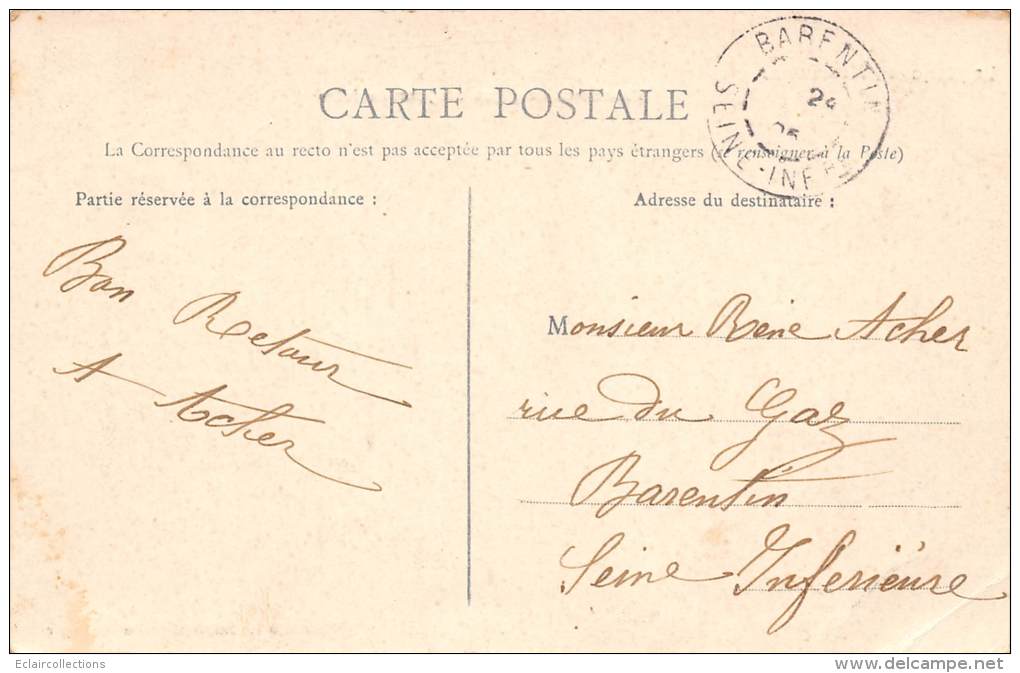 CARTE POSTALE
La Correspondance au recto n'est pas acceptée par tous les pays étrangers (se renseigner à la Poste)
Partie réservée à la correspondance :
Adresse du destinataire :
BARENTIN
24
SEINE-INFRE
Bon
Retour
A Acher
Monsieur Réné Acher
rue du Gaz
Barentin
Seine Inférieure
Eclaircollections
www.delcampe.net